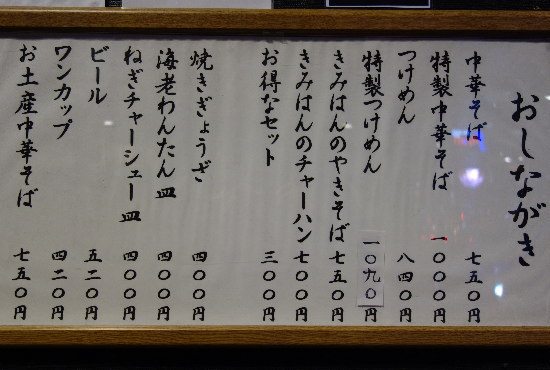 おしながき
中華そば 七五〇円
特製中華そば 一〇〇〇円
つけめん 八四〇円
特製つけめん 一〇九〇円
きみはんのやきそば 七五〇円
きみはんのチャーハン 七〇〇円
お得なセット 三〇〇円
焼きぎょうざ 四〇〇円
海老わんたん皿 四〇〇円
ねぎチャーシュー皿 四〇〇円
ビール 五二〇円
ワンカップ 四二〇円
お土産中華そば 七五〇円